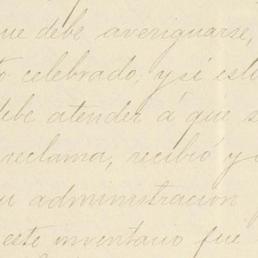 que debe averiguarse,
to celebrado, y si esto
debe atender á que s
reclama, recibió y
su administracion
este inventario fue